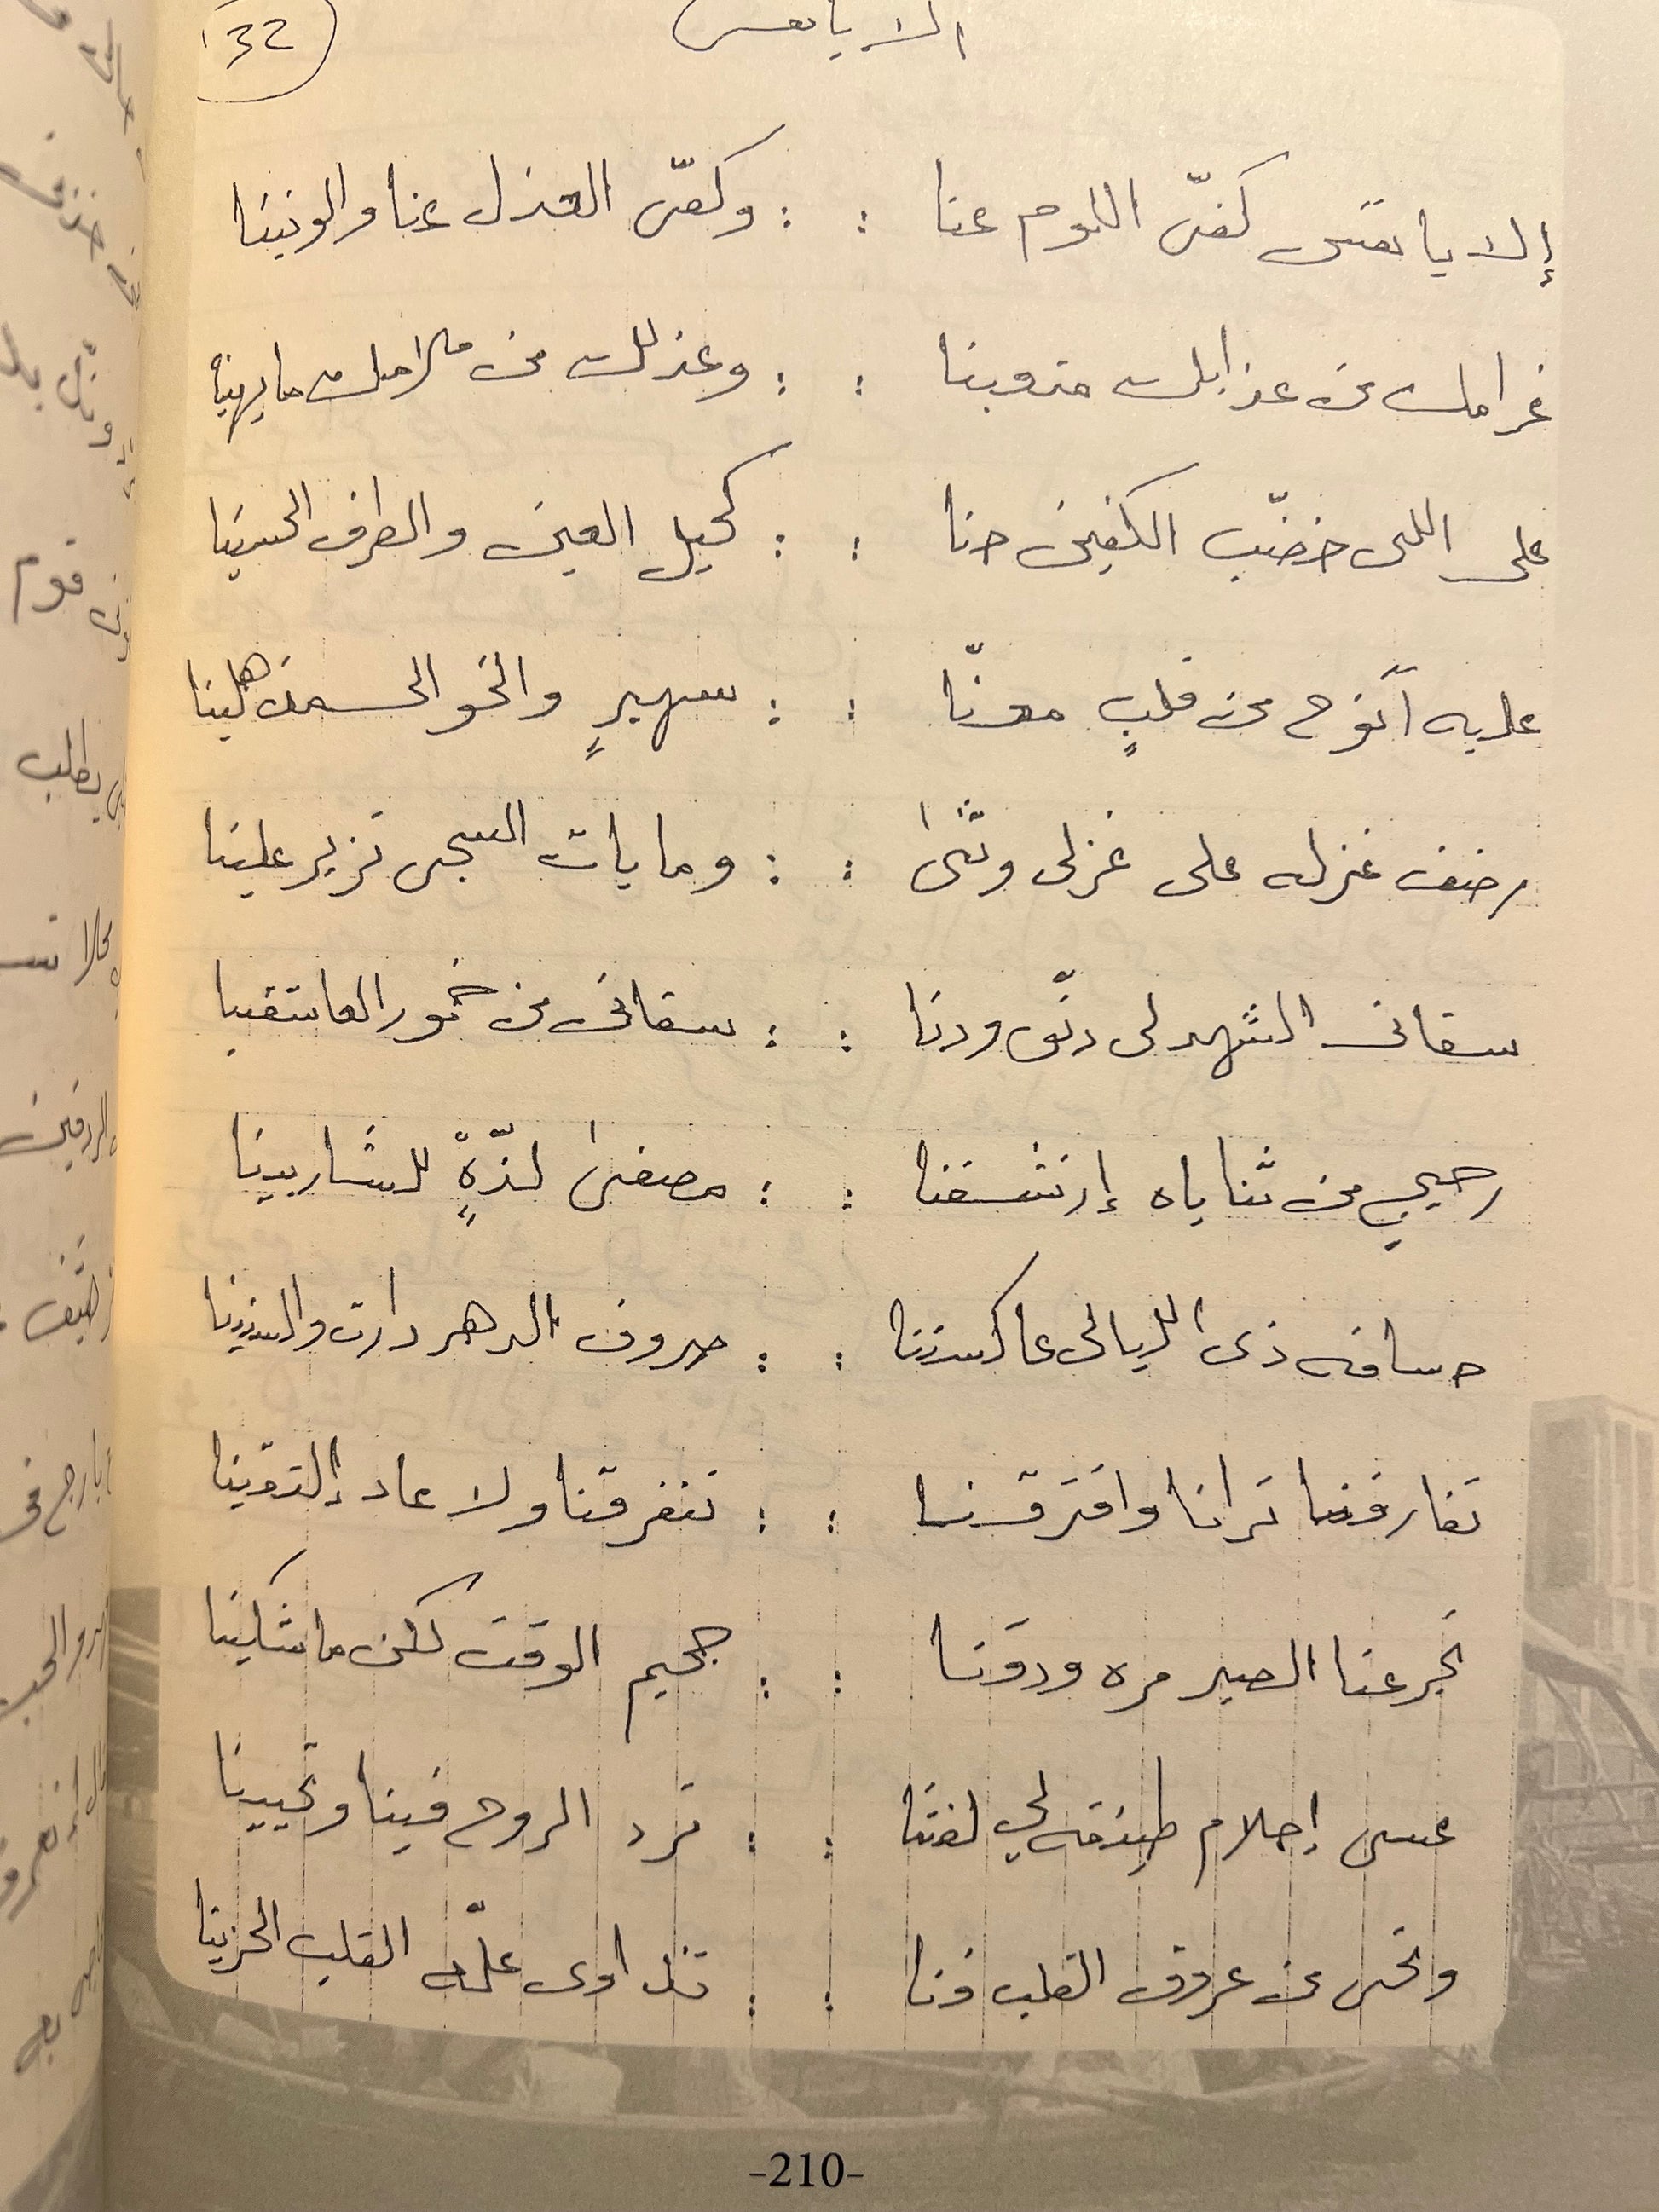 32
الا يا نفس
إلا يا نفس كفّي اللوم عنا : : وكفّي العذل عنا والونينا
غرامك من عذابك : : وعذلك من ملامك ما يهينا
على اللي خضّب الكفين حنا : : كحيل العين والطرف الحسينا
عليه آنوح من قلبٍ معنّا : : سهيرٍ والخو الى
غزله على غزلي وثنّى : : وما يات السجى تزير علينا
سقاني الشهد لي دنّق ودنا : : سقاني من خمور العاشقينا
رحيقٍ من ثناياه إرتشفنا : : مصفىٰ لذّةٍ للشاربينا
حسافه ذي الليالي عاكستنا : : صروف الدهر دارت والسنينا
تفارقنا ترانا وافترقنا : : تفرقنا ولا عاد إلتقينا
تجرعنا الصبر مره وذقنا : : جحيم الوقت لكن ما شكينا
عسى إحلام طيفه لي لفتنا : : ترد الروح فينا وتحيينا
وتحس من عروق القلب فنا : : تداوي علّة القلب الحزينا
-210-